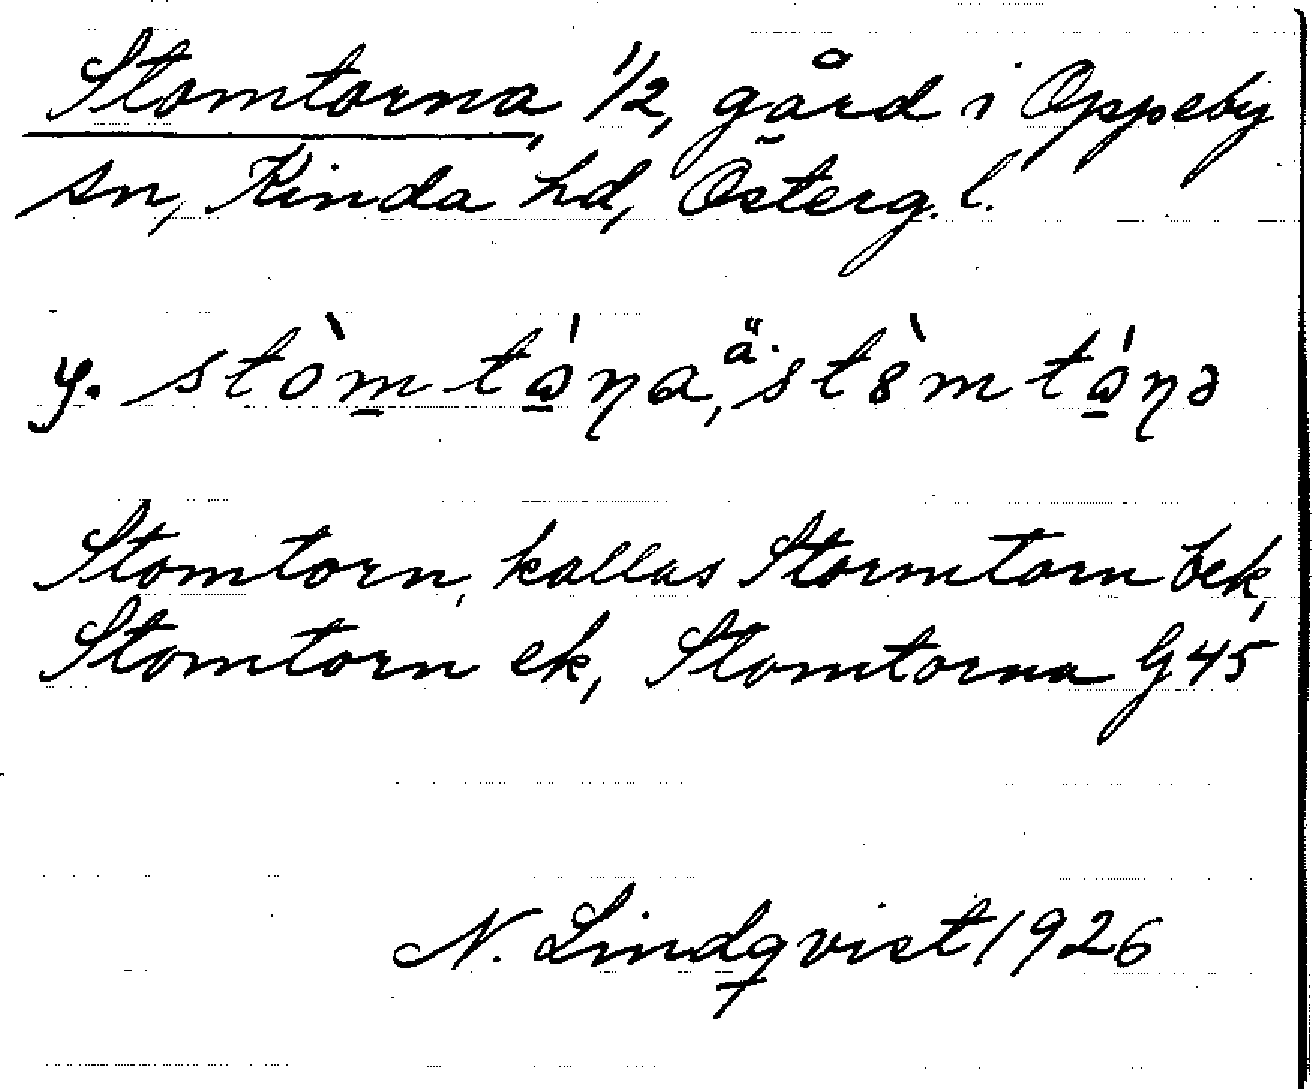 Stomtorna, 1/2, gård i Oppeby
sn, Kinda hd, Österg. l.
y. stòmtɷ́ɳa, ä. stòmtɷ́ɳə
Stomtorn, kallas Stormtorn bek,
Stomtorn ek, Stomtorna G 45
N. Lindqvist 1926